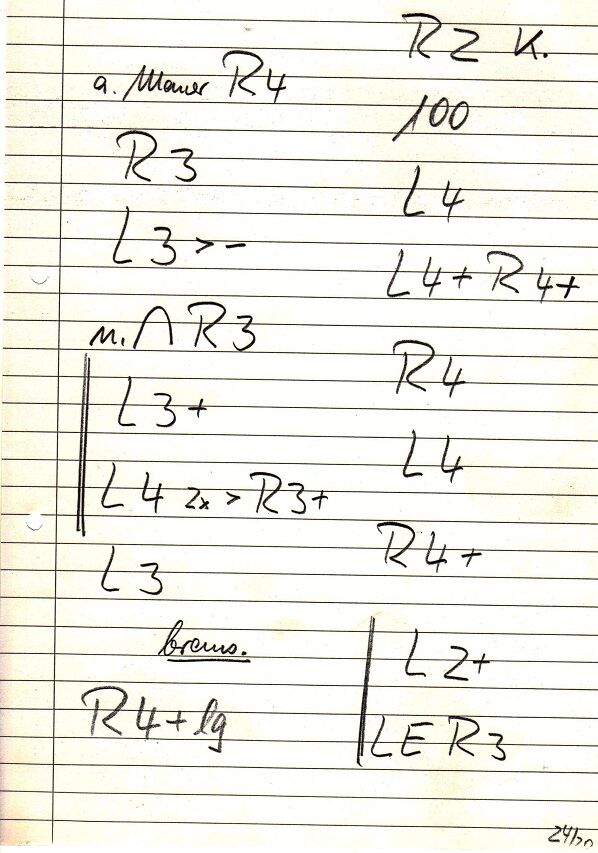 a. Mauer R4
R3
L3 > -
n. ∩ R3
L3+
L4 2x > R3+
L3
brems.
R4+ lg
R2 K.
100
L4
L4+ R4+
R4
L4
R4+
L2+
LE R3
24/20